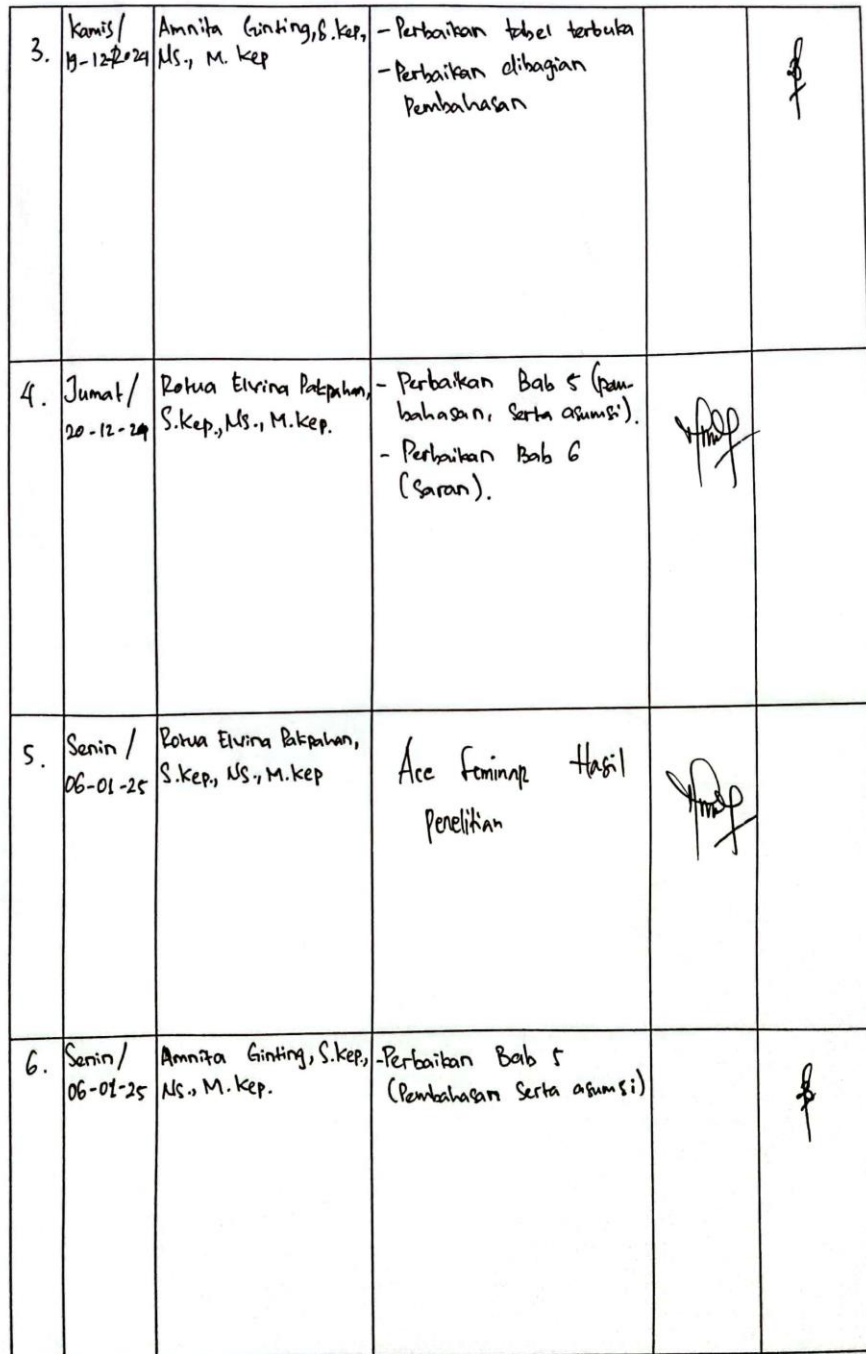 3.
Kamis/
19-12-2024
Amnita Ginting, S.Kep,
Ns., M. Kep
- Perbaikan tabel terbuka
- Perbaikan dibagian
Pembahasan
4.
Jumat/
20-12-24
Rotua Elvina Pakpahan,
S.Kep., Ns., M.Kep.
- Perbaikan Bab 5 (pem-
bahasan, serta asumsi).
- Perbaikan Bab 6
(Saran).
5.
Senin /
06-01-25
Rotua Elvina Pakpahan,
S.Kep., Ns., M.Kep
Acc Seminar Hasil
Penelitian
6.
Senin/
06-01-25
Amnita Ginting, S.Kep,
Ns., M.Kep.
-Perbaikan Bab 5
(Pembahasan Serta asumsi)